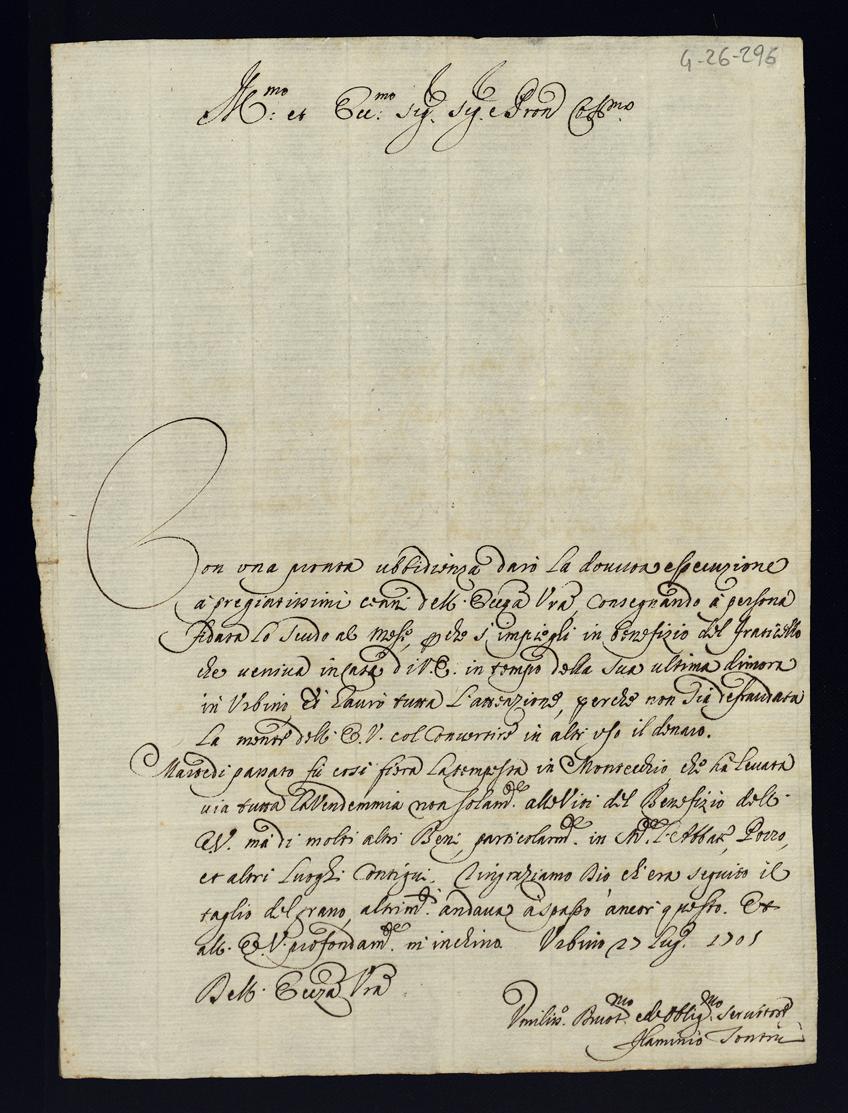 4-26-296
Ill.mo: et Ecc:mo Sig.r Sig.r e Pron Col.mo
Con una pronta ubbidienza darò la dovuta essecuzione
a' pregiatissimi cenni dell'Eccza Vra, consegnando à persona
fidata lo scudo al mese, pche s'impieghi in benefizio del fraticello
che veniva in casa di V.E. in tempo della sua ultima dimora
in Urbino, et havrò tutta l'attenzione, perche non sia defraudata
la mente dell'E.V. col convertire in altri uso il denaro.
Martedi passato fù così fiera la tempesta in Montecchio che hà levata
via tutta la Vendemmia non solam.te alle Viti del Benefizio dell'
E.V. mà di molti altri Beni, particolarm.te in l'Abbate, Pozzo,
et altri luoghi contigui. Ringraziamo Dio ch'era seguito il
taglio del grano, altrim.te andava à spasso ancor questo. Et
all'E.V. profondam.te m'inchino Urbino 27 Lug. 1701
Dell'Eccza Vra
Umiliss.o Devot.mo ed Oblig.mo Servitore
Flaminio